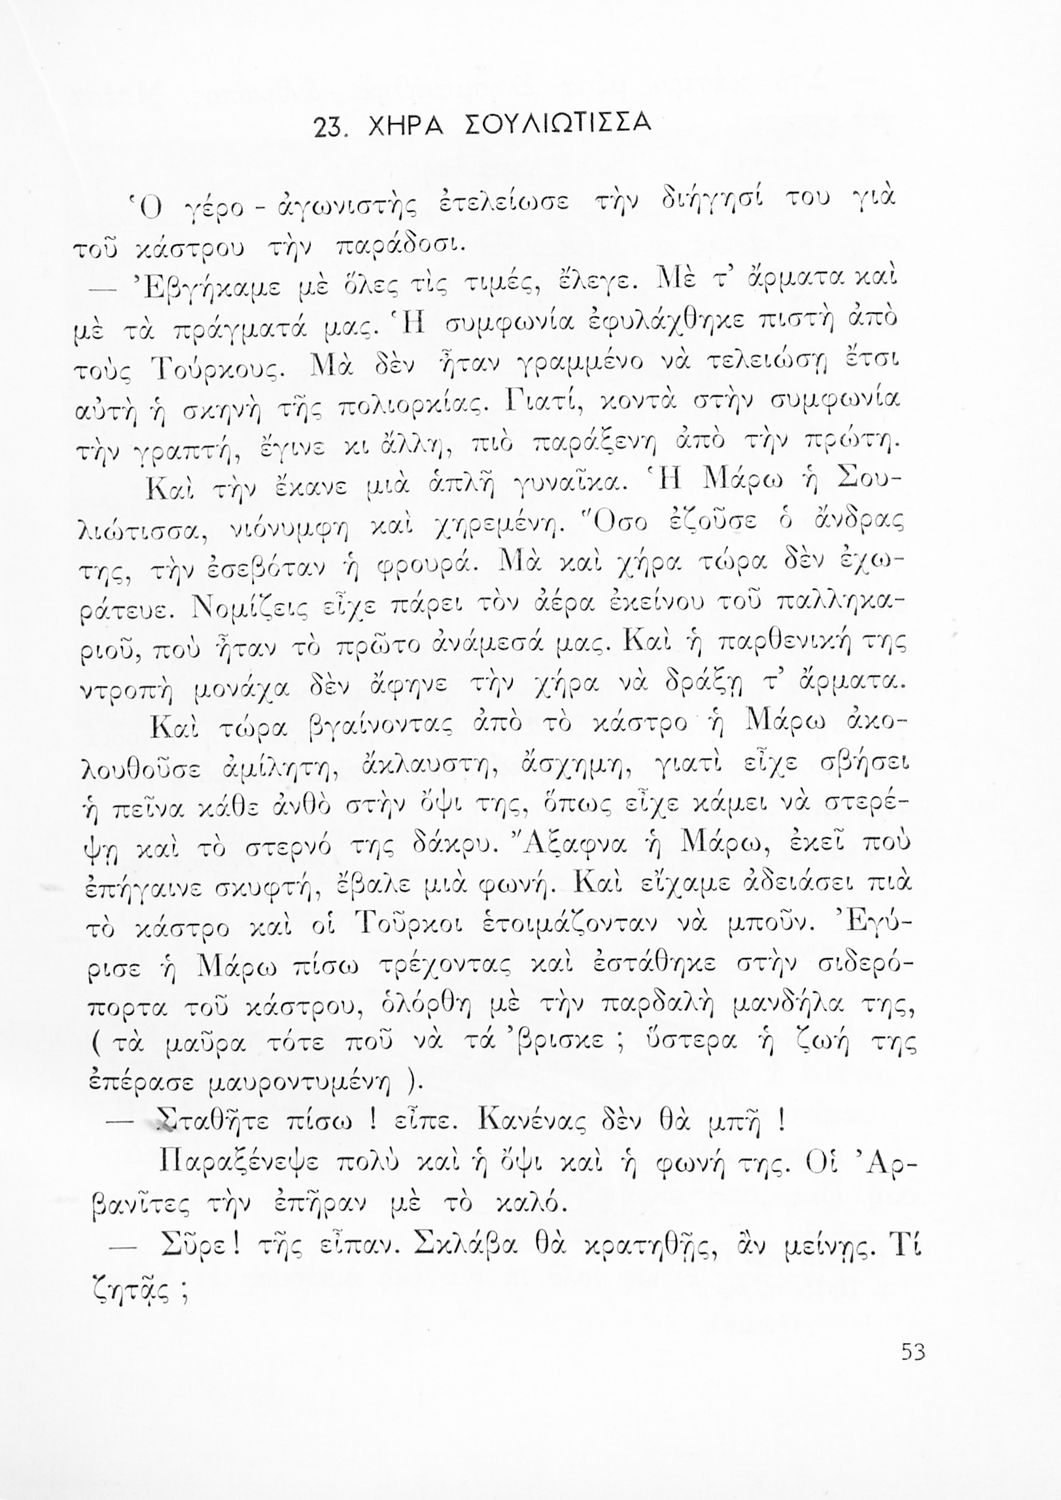 23. ΧΗΡΑ ΣΟΥΛΙΩΤΙΣΣΑ
Ὁ γέρο - ἀγωνιστὴς ἐτελείωσε τὴν διήγησί του γιὰ
τοῦ κάστρου τὴν παράδοσι.
— Ἐβγήκαμε μὲ ὅλες τὶς τιμές, ἔλεγε. Μὲ τ’ ἄρματα καὶ
μὲ τὰ πράγματά μας. Ἡ συμφωνία ἐφυλάχθηκε πιστὴ ἀπὸ
τοὺς Τούρκους. Μὰ δὲν ἦταν γραμμένο νὰ τελειώσῃ ἔτσι
αὐτὴ ἡ σκηνὴ τῆς πολιορκίας. Γιατί, κοντὰ στὴν συμφωνία
τὴν γραπτή, ἔγινε κι ἄλλη, πιὸ παράξενη ἀπὸ τὴν πρώτη.
Καὶ τὴν ἔκανε μιὰ ἁπλῆ γυναῖκα. Ἡ Μάρω ἡ Σου-
λιώτισσα, νιόνυμφη καὶ χηρεμένη. Ὅσο ἐζοῦσε ὁ ἄνδρας
της, τὴν ἐσεβόταν ἡ φρουρά. Μὰ καὶ χήρα τώρα δὲν ἐχω-
ράτευε. Νομίζεις εἶχε πάρει τὸν ἀέρα ἐκείνου τοῦ παλληκα-
ριοῦ, ποὺ ἦταν τὸ πρῶτο ἀνάμεσά μας. Καὶ ἡ παρθενική της
ντροπὴ μονάχα δὲν ἄφηνε τὴν χήρα νὰ δράξῃ τ’ ἄρματα.
Καὶ τώρα βγαίνοντας ἀπὸ τὸ κάστρο ἡ Μάρω ἀκο-
λουθοῦσε ἀμίλητη, ἄκλαυστη, ἄσχημη, γιατὶ εἶχε σβήσει
ἡ πεῖνα κάθε ἀνθὸ στὴν ὄψι της, ὅπως εἶχε κάμει νὰ στερέ-
ψῃ καὶ τὸ στερνό της δάκρυ. Ἄξαφνα ἡ Μάρω, ἐκεῖ ποὺ
ἐπήγαινε σκυφτή, ἔβαλε μιὰ φωνή. Καὶ εἴχαμε ἀδειάσει πιὰ
τὸ κάστρο καὶ οἱ Τοῦρκοι ἑτοιμάζονταν νὰ μποῦν. Ἐγύ-
ρισε ἡ Μάρω πίσω τρέχοντας καὶ ἐστάθηκε στὴν σιδερό-
πορτα τοῦ κάστρου, ὁλόρθη μὲ τὴν παρδαλὴ μανδήλα της,
( τὰ μαῦρα τότε ποῦ νὰ τά ’βρισκε ; ὕστερα ἡ ζωή της
ἐπέρασε μαυροντυμένη ).
— Σταθῆτε πίσω ! εἶπε. Κανένας δὲν θὰ μπῆ !
Παραξένεψε πολὺ καὶ ἡ ὄψι καὶ ἡ φωνή της. Οἱ Ἀρ-
βανῖτες τὴν ἐπῆραν μὲ τὸ καλό.
— Σῦρε! τῆς εἶπαν. Σκλάβα θὰ κρατηθῇς, ἂν μείνῃς. Τί
ζητᾷς ;
53